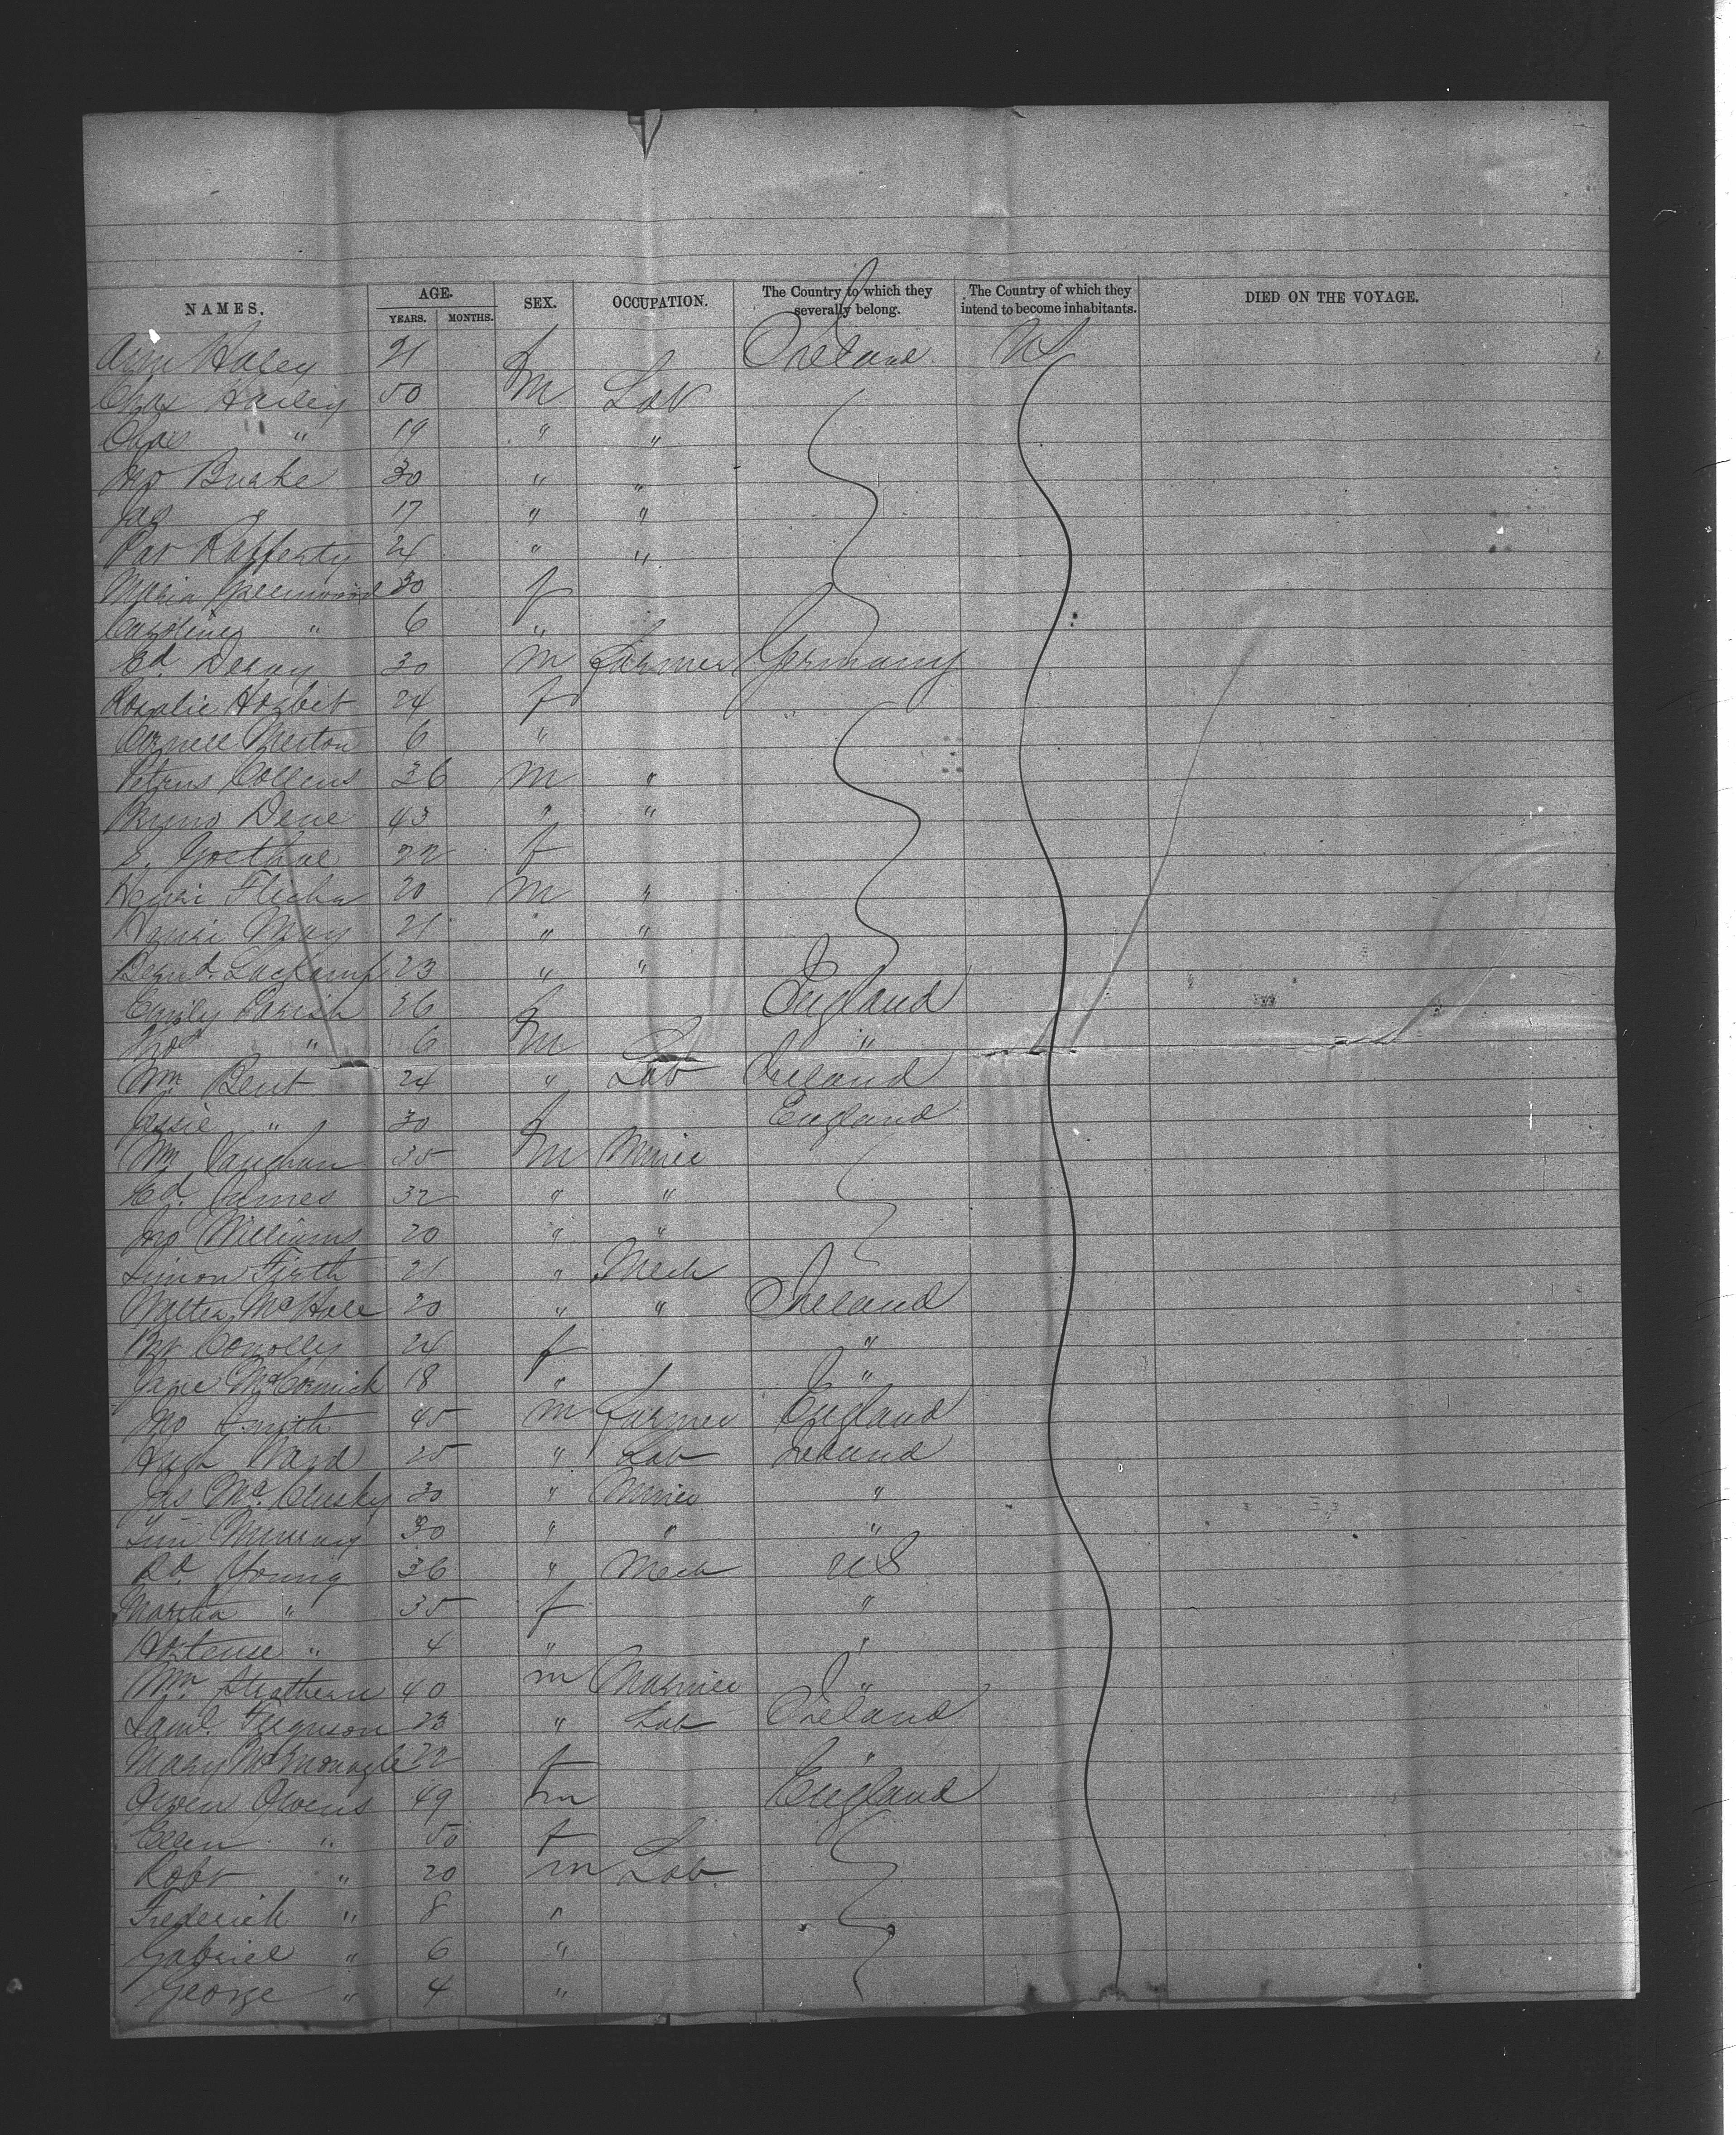 NAMES. AGE. YEARS. MONTHS. SEX. OCCUPATION. The Country to which they severally belong. The Country of which they intend to become inhabitants. DIED ON THE VOYAGE.
Ann Haley 21 f Ireland US
Chas Hailey 50 m Lab
Chas " 19 " "
Jno Burke 30 " "
Jas " 17 " "
Pat Rafferty 24 " "
Maria Greenwood 30 f
Caroline " 6 "
Ed. 30 m Farmer Germany
Rosalie 24 f "
6 "
Petrus Collens 36 m "
Bruno Dene 43 " "
S. Goethal 22 f
Henri 20 m "
Henri May 21 " "
Bernd. 23 " "
Emily Parish 26 f England
" 6 m "
Wm Bent 24 " Lab Ireland
Jessie " 30 f England
Wm Vaughan 35 m Miner
Ed. James 32 " "
Jno Williams 20 " "
Simon Firth 21 " Mech
Walter McHale 20 " " Ireland
Bt Conolly 24 f "
Jane McCormick 18 " "
Jno Smith 45 m Farmer England
Hugh Ward 25 " Lab Ireland
Jas McClusky 30 " Miner "
Tim Murray 30 " " "
Rd. Young 36 " Mech US
Martha " 35 f "
Hortense " 4 " "
Wm. Strathern 40 m Mariner "
Saml. Ferguson 23 " Lab Ireland
Mary McMonagle 22 f "
Owen Owens 49 m England
Ellen " 50 f
Robt " 20 m Lab.
Frederick " 8 "
Gabriel " 6 "
George " 4 "